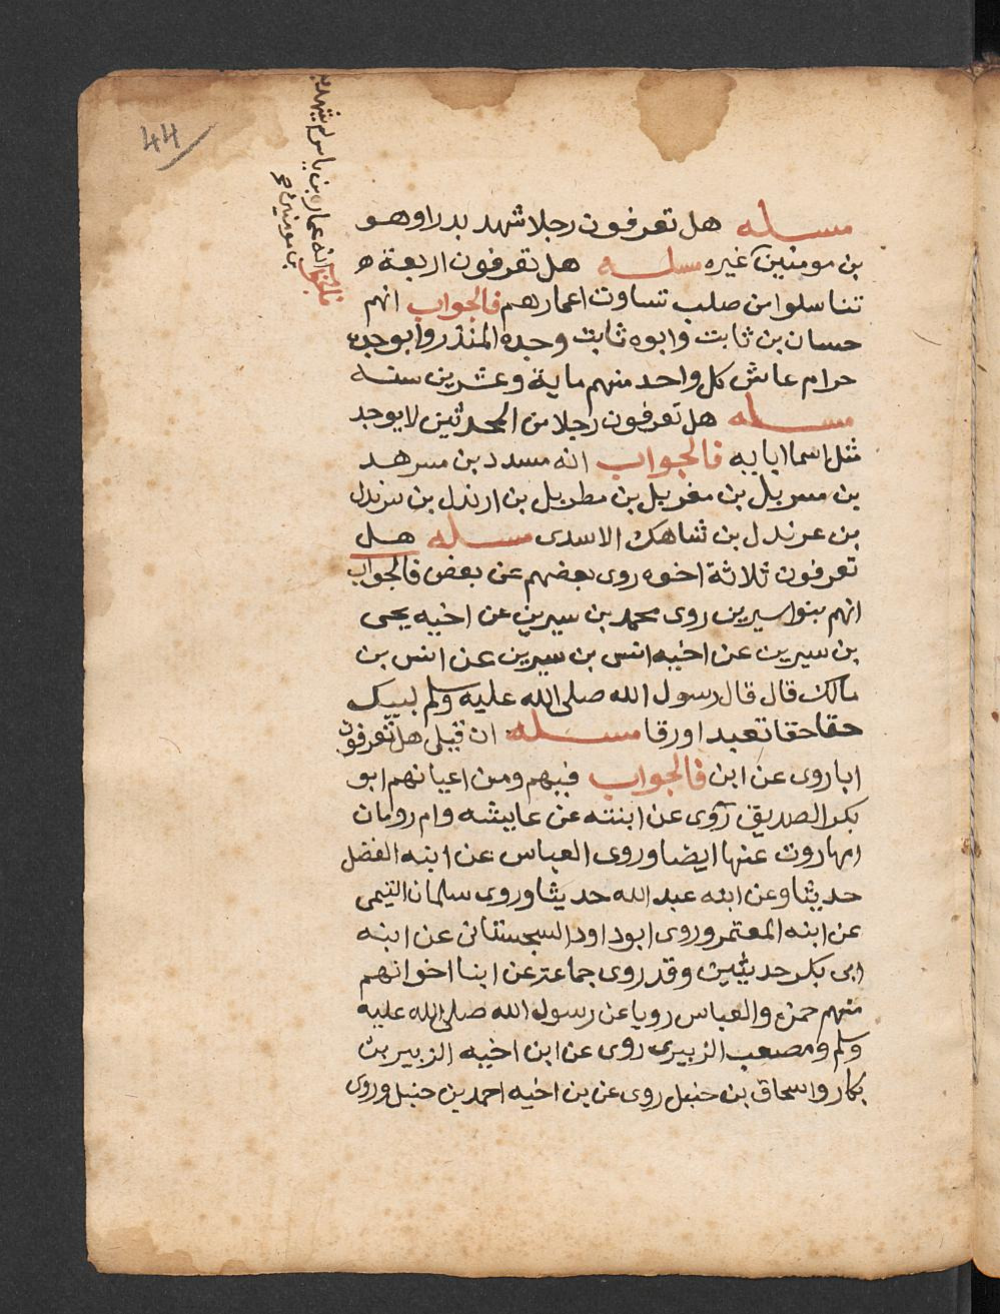 44
مسله هل تعرفون رجلا شهد بدرا وهو
بن مومنين غيره مسله هل تعرفون اربعة
تناسلوا من صلب تساوت اعمارهم فالجواب انهم
حسان بن ثابت وابوه ثابت وجده المنذر وابو جده
حرام عاش كل واحد منهم ماية وعشرين سنه
مسله هل تعرفون رجلا من المحدثين لا يوجد
مثل اسما ابايه فالجواب انه مسدد بن مسرهد
بن مسربل بن مغربل بن مطربل بن ارندل بن سرندل
بن عرندل بن ثناهك الاسدى مسله هل
تعرفون ثلاثة اخوه روى بعضهم عن بعض فالجواب
انهم بنوا سيرين روى محمد بن سيرين عن اخيه يحى
بن سيرين عن اخيه انس بن سيرين عن انس بن
مالك قال قال رسول الله صلى الله عليه وسلم لبيك
حقا حقا تعبدا ورقا مسله ان قيل هل تعرفون
ابا روى عن ابن فالجواب فيهم ومن اعيانهم ابو
بكر الصديق روى عن ابنته عن عايشه وام رومان
امها روت عنها ايضا وروى العباس عن ابنه الفضل
حديثا وعن ابنه عبد الله حديثا وروى سلمان التيمى
عن ابنه المعتمر وروى ابو داود السجستانى عن ابنه
ابى بكر حديثين وقد روى جماعة عن ابنا اخوانهم
منهم حمزه والعباس رويا عن رسول الله صلى الله عليه
وسلم ومصعب الزبيرى روى عن ابن اخيه الزبير بن
بكار واسحاق بن حنبل روى عن بن اخيه احمد بن حنبل وروى
فالجواب انه عمار بن ياسر شهد بد
بن مومنين